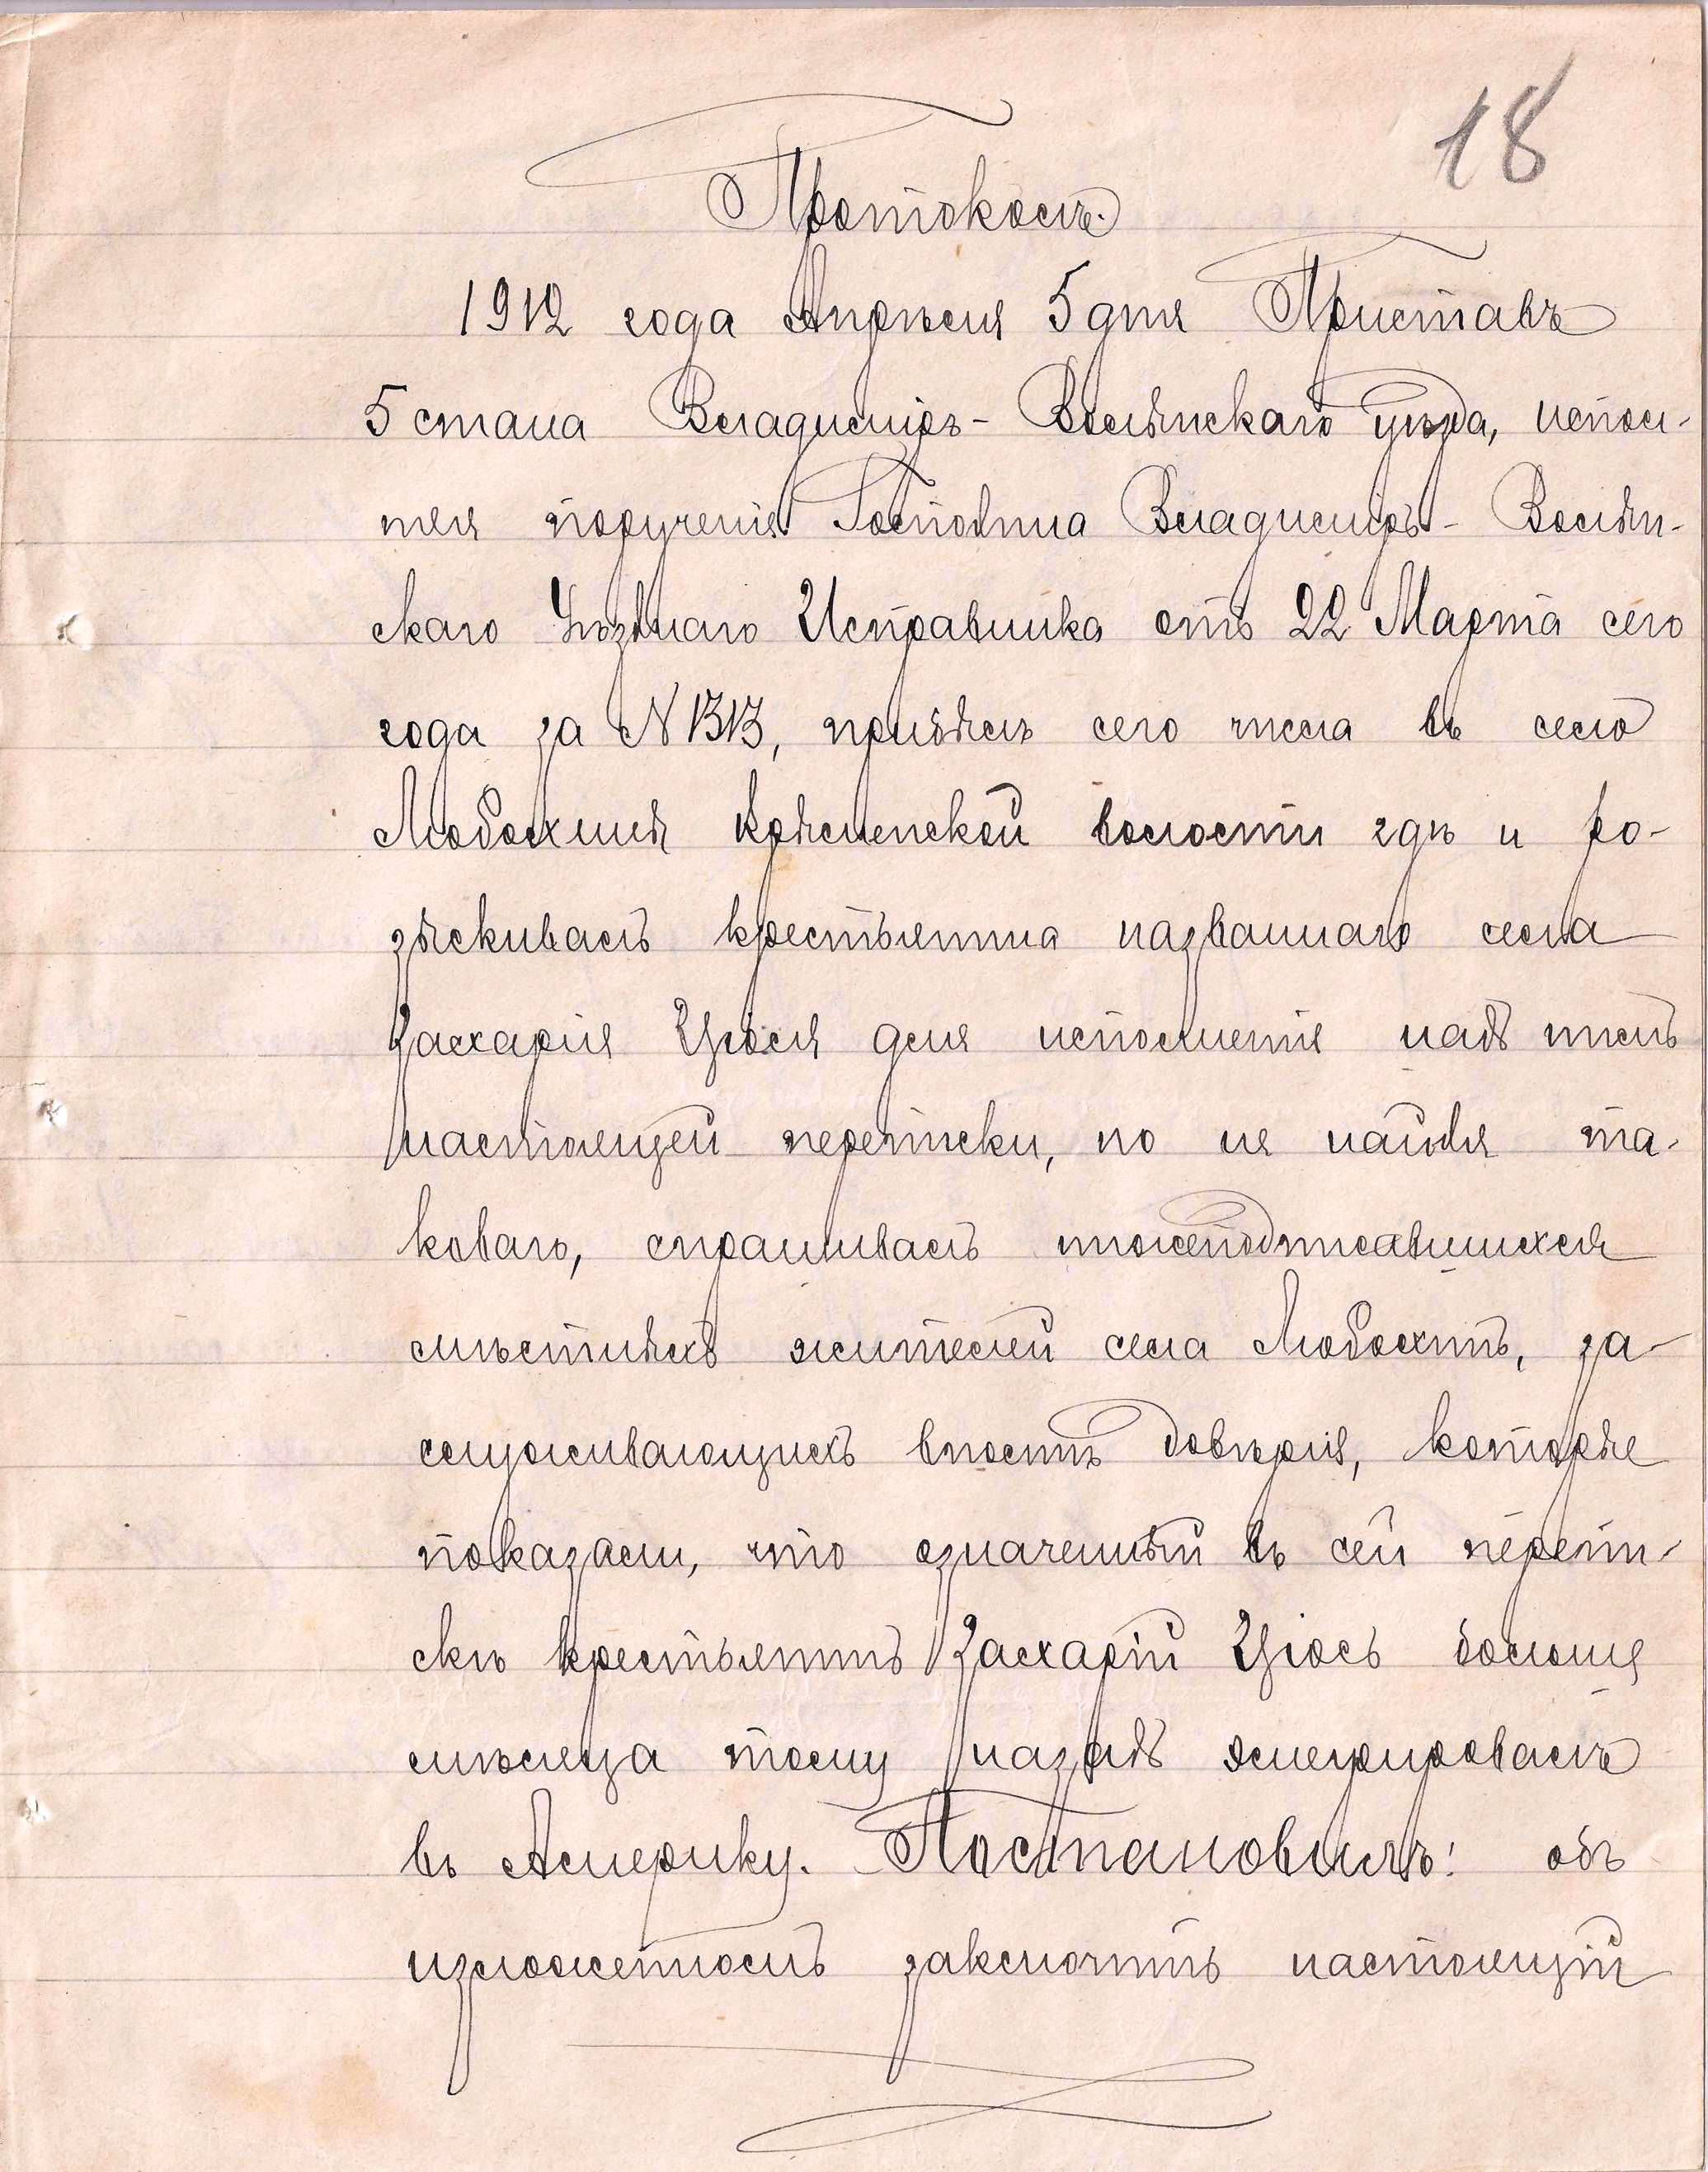 18
Протоколъ.
1912 года Апрѣля 5 дня Приставъ
5 стана Владиміръ-Волынскаго уѣзда, испол-
няя порученіе Господина Владиміръ-Волын-
скаго Уѣзднаго Исправника отъ 22 Марта сего
года за N 1313, прибылъ сего числа въ село
Любохины Крымненской волости гдѣ и ро-
зыскивалъ крестьянина названнаго села
Захарія Цюся для исполненія надъ нимъ
настоящей переписки, но не найдя та-
коваго, спрашивалъ нижеподписавшихся
мѣстныхъ жителей села Любохинъ, за-
служивающихъ вполнѣ довѣрія, которые
показали, что означенный въ сей перепи-
скѣ крестьянинъ Захарій Цюсь больше
мѣсяца тому назадъ эмигрировалъ
въ Америку. Постановилъ: объ
изложенномъ заключить настоящій